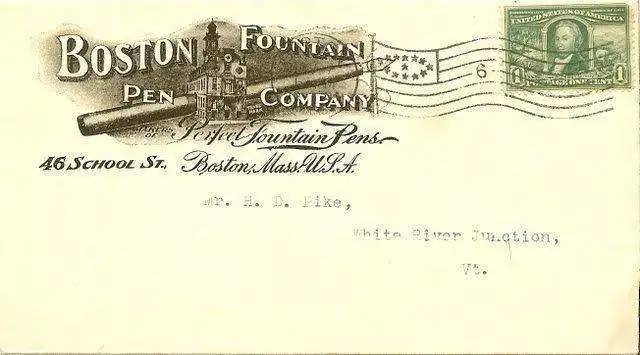 BOSTON FOUNTAIN
PEN COMPANY
MAKERS OF Perfect Fountain Pens
46 SCHOOL ST., Boston, Mass. U.S.A.
6
UNITED STATES OF AMERICA
1 POSTAGE ONE CENT 1
Mr. H. D. Pike,
White River Junction,
Vt.